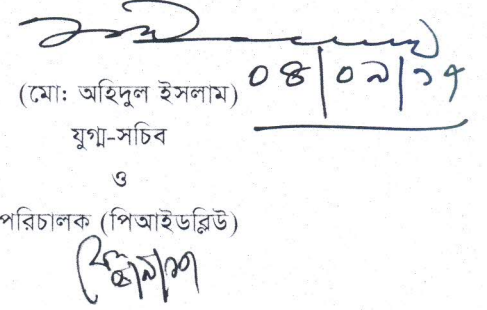 ০৪|০৯|১৭
(মো: অহিদুল ইসলাম)
যুগ্ম-সচিব
ও
পরিচালক (পিআইডব্লিউ)